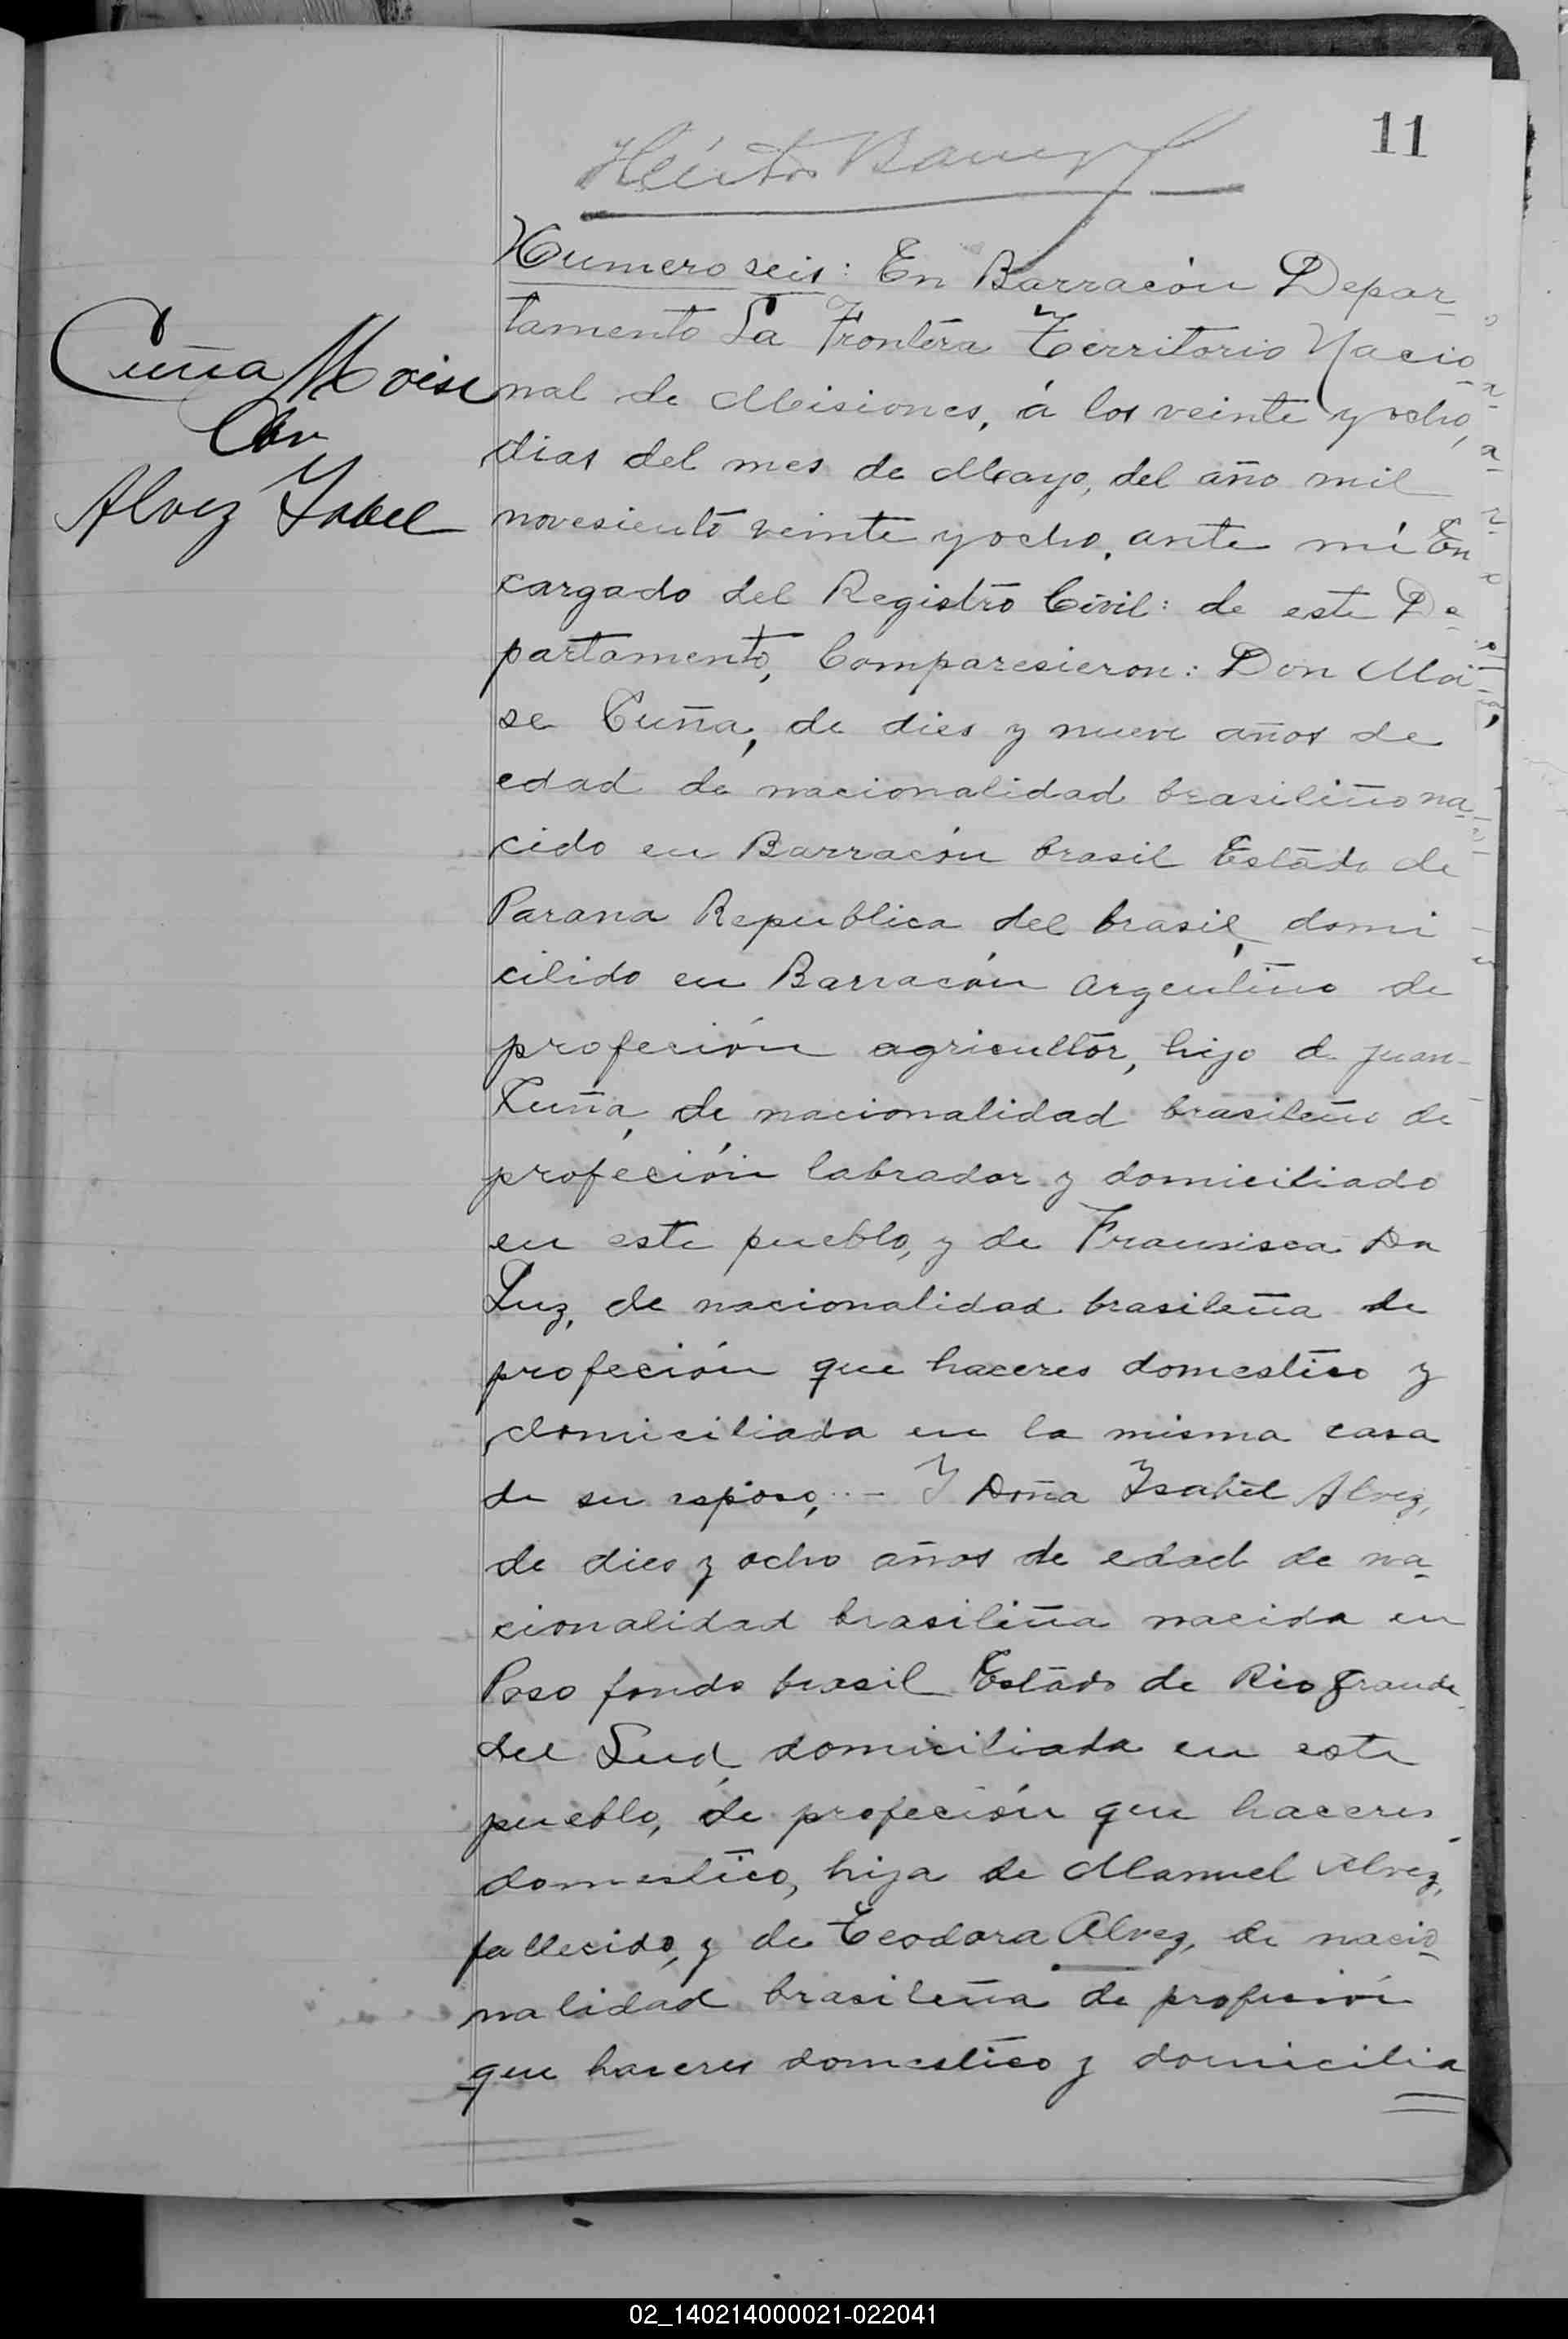 11
Cuña Moise
Con
Alvez Isabel
Numero seis: En Barracón Depar-
tamento La Frontera Territorio Nacio-
nal de Misiones, á los veinte y ocho,
dias del mes de Mayo, del año mil
novesiento veinte y ocho, ante mí En
cargado del Registro Civil: de este De-
partamento, Comparesieron: Don Moi-
se Cuña, de dies y nueve años de
edad de nacionalidad brasiliño na-
cido en Barracón brasil Estado de
Parana Republica del brasil, domi
cilido en Barracón argentino de
profesión agricultor, hijo de juan
Cuña, de nacionalidad brasileño de
profeción labrador y domiciliado
en este pueblo, y de Fransisca Da
Luz, de nacionalidad brasileña de
profeción que haceres domestico y
domiciliada en la misma casa
de su esposo, - Y Doña Ysabel Alvez,
de dies y ocho años de edad de na-
cionalidad brasiliña nacida en
Paso fondo brasil Estado de Rio grande
del Sud, domiciliada en este
pueblo, de profeción que haceres
domestico, hija de Manuel Alvez,
fallecido, y de Teodora Alvez, de nacio-
nalidad brasileña de profesión
que haceres domestico y domicilia
02_140214000021-022041